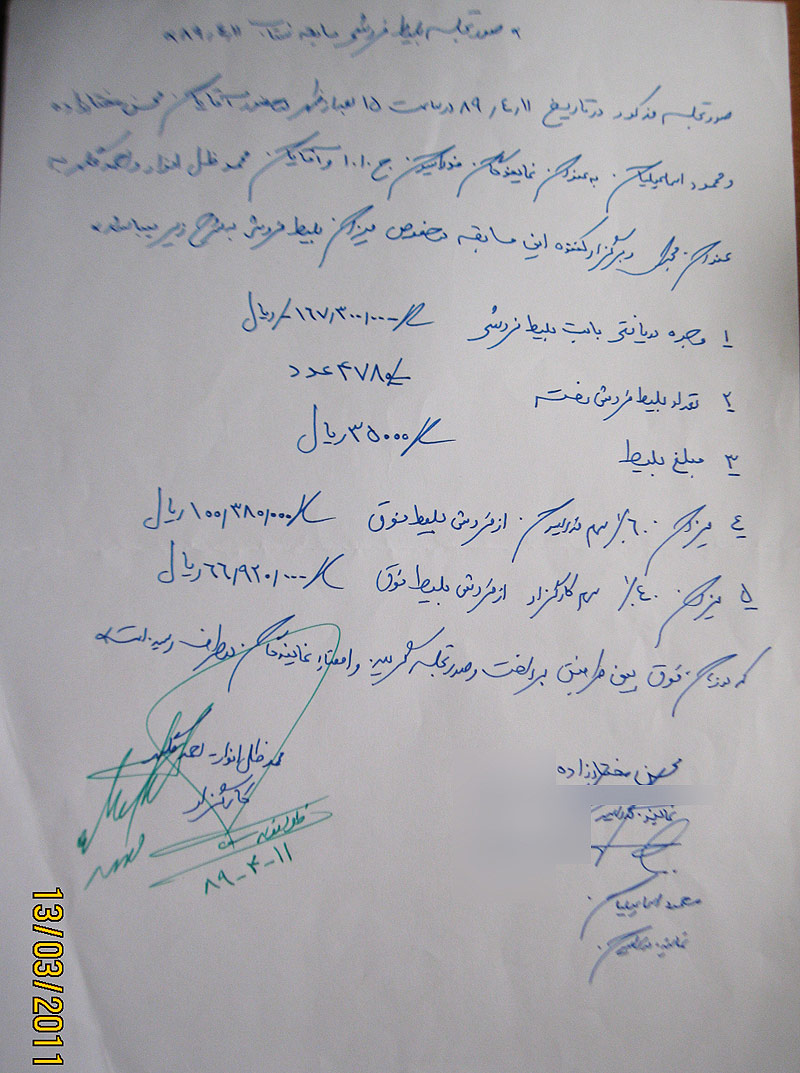 صورتجلسه بلیط فروشی مسابقه ۸۹/۴/۱۱
صورتجلسه مذکور در تاریخ ۸۹/۴/۱۱ در ساعت ۱۵ بعدازظهر با حضور آقایان محسن مختارزاده
و محمود اسماعیلیان به عنوان نمایندگان فدراسیون ج.ا.ا و آقایان محمد ظل انوار و احمد به
عنوان مجری و برگزار کننده این مسابقه درخصوص میزان بلیط فروشی به شرح زیر میباشد
۱ وجوه دریافتی بابت بلیط فروشی ۱۶۷/۳۰۰/۰۰۰ ریال
۲ تعداد بلیط فروش رفته ۴۷۸۰ عدد
۳ مبلغ بلیط ۳۵۰۰۰ ریال
۴ میزان ۶۰٪ سهم فدراسیون از فروش بلیط فوق ۱۰۰/۳۸۰/۰۰۰ ریال
۵ میزان ۴۰٪ سهم کارگزار از فروش بلیط فوق ۶۶/۹۲۰/۰۰۰ ریال
که میزان فوق بین طرفین پرداخت و صورتجلسه گردید و امضاء نمایندگان دو طرف رسیده است
محسن مختارزاده
نماینده فدراسیون
محمود اسماعیلیان
نماینده فدراسیون
محمد ظل انوار - احمد
کارگزار
۸۹-۴-۱۱
13/03/2011